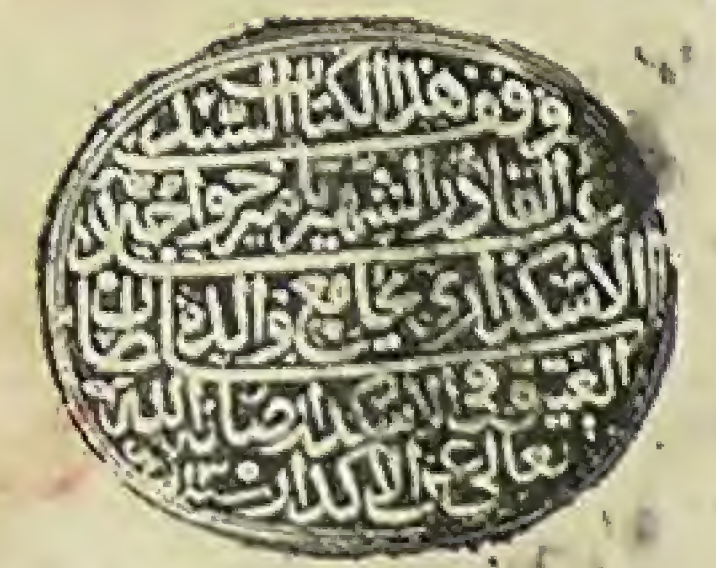 وقف هذا الكتاب السيد
عبد القادر الشهير بامير خواجه
الاسكداري بجامع والدة
العتيق في الاسكدار صانه الله
تعالى عن الاكدار